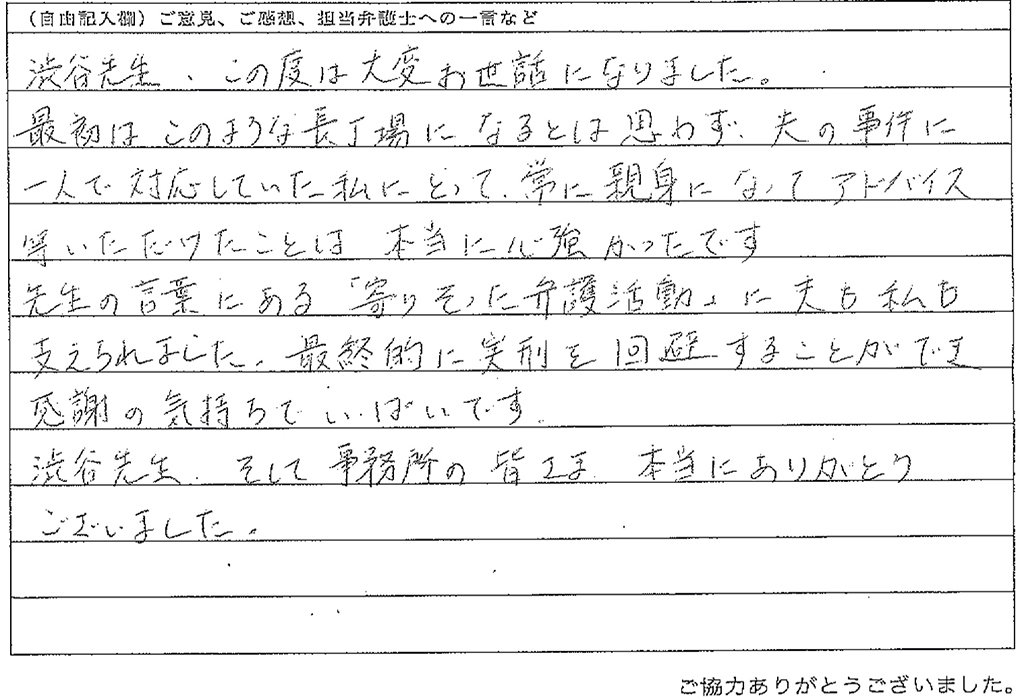 （自由記入欄）ご意見、ご感想、担当弁護士への一言など
渋谷先生、この度は大変お世話になりました。
最初はこのような長丁場になるとは思わず、夫の事件に
一人で対応していた私にとって、常に親身になってアドバイス
等いただけたことは 本当に心強かったです
先生の言葉にある「寄りそった弁護活動」に夫も私も
支えられました。最終的に実刑を回避することができ
感謝の気持ちでいっぱいです。
渋谷先生、そして事務所の皆さま、本当にありがとう
ございました。
ご協力ありがとうございました。